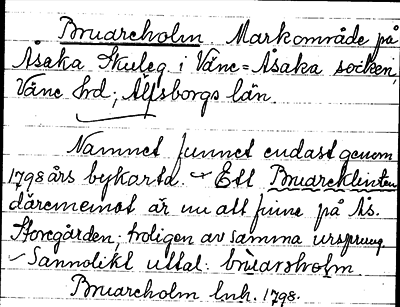 Bruareholm. Markområde på
Åsaka Skuleg iVäne=Åsaka socken,
Väne hrd; Älfsborgs län.
Namnet funnet endast genom
1798 års bykarta. Ett Bruareklinten
däremot är nu att finne på Ås.
Storegården; troligen av samma ursprung
Sannolikt uttal:
Bruareholm Lnh. 1798.